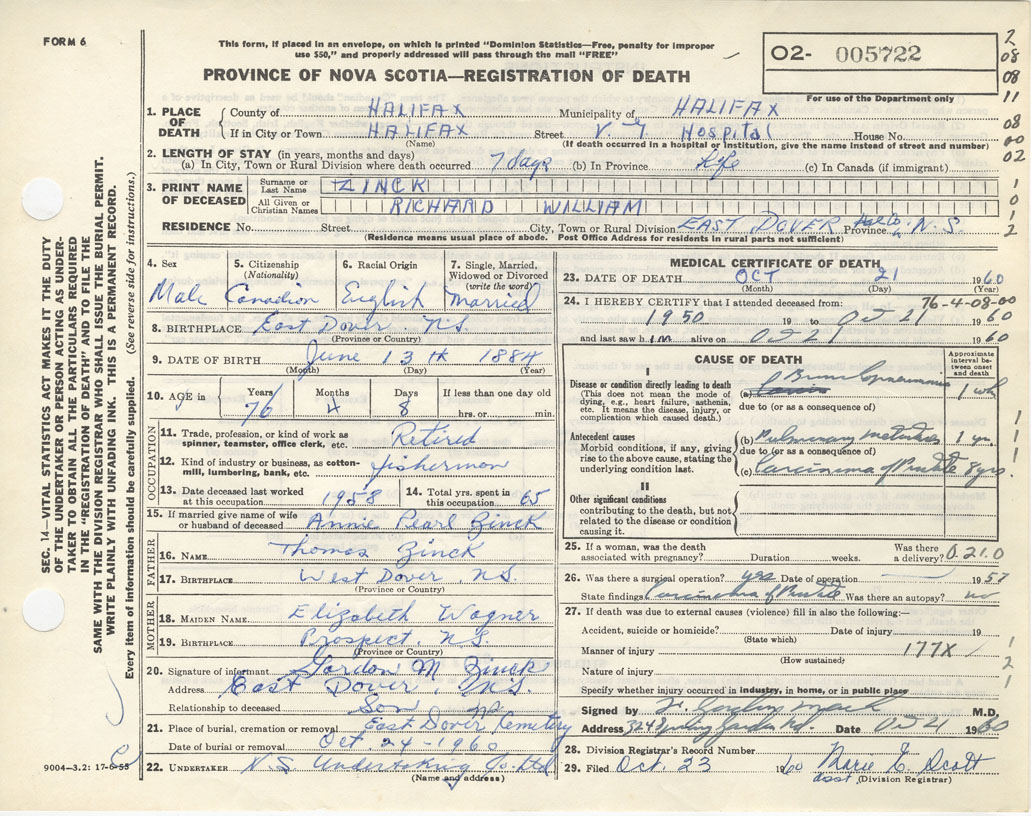 FORM 6
This form, if placed in an envelope, on which is printed "Dominion Statistics—Free, penalty for improper
use $50," and properly addressed will pass through the mail "FREE"
PROVINCE OF NOVA SCOTIA—REGISTRATION OF DEATH
02- 005722
For use of the Department only
2
08
08
11
08
00
02
1
0
1
2
1. PLACE OF DEATH
County of HALIFAX Municipality of HALIFAX
If in City or Town HALIFAX Street V. G. Hospital House No.
(Name) (If death occurred in a hospital or institution, give the name instead of street and number)
2. LENGTH OF STAY (in years, months and days)
(a) In City, Town or Rural Division where death occurred 7 days (b) In Province Life (c) In Canada (if immigrant)
3. PRINT NAME OF DECEASED
Surname or Last Name ZINCK
All Given or Christian Names RICHARD WILLIAM
RESIDENCE No. Street City, Town or Rural Division EAST DOVER Province N.S.
(Residence means usual place of abode. Post Office Address for residents in rural parts not sufficient)
SEC. 14—VITAL STATISTICS ACT MAKES IT THE DUTY
OF THE UNDERTAKER OR PERSON ACTING AS UNDER-
TAKER TO OBTAIN ALL THE PARTICULARS REQUIRED
IN THE "REGISTRATION OF DEATH" AND TO FILE THE
SAME WITH THE DIVISION REGISTRAR WHO SHALL ISSUE THE BURIAL PERMIT.
WRITE PLAINLY WITH UNFADING INK. THIS IS A PERMANENT RECORD.
Every item of information should be carefully supplied. (See reverse side for instructions.)
4. Sex Male
5. Citizenship (Nationality) Canadian
6. Racial Origin English
7. Single, Married, Widowed or Divorced (write the word) Married
8. BIRTHPLACE East Dover. N.S.
(Province or Country)
9. DATE OF BIRTH June 13th 1884
(Month) (Day) (Year)
10. AGE in Years 76 Months 4 Days 8 If less than one day old
hrs. or min.
OCCUPATION
11. Trade, profession, or kind of work as spinner, teamster, office clerk, etc. Retired
12. Kind of industry or business, as cotton-mill, lumbering, bank, etc. fisherman
13. Date deceased last worked at this occupation 1958
14. Total yrs. spent in this occupation 65
15. If married give name of wife or husband of deceased Annie Pearl Zinck
FATHER
16. NAME Thomas Zinck
17. BIRTHPLACE West Dover, N.S.
(Province or Country)
MOTHER
18. MAIDEN NAME Elizabeth Wagner
19. BIRTHPLACE Prospect, N.S.
(Province or Country)
20. Signature of informant Gordon M Zinck
Address East Dover, N.S.
Relationship to deceased Son
21. Place of burial, cremation or removal East Dover Cemetery
Date of burial or removal Oct. 24-1960
22. UNDERTAKER N.S Undertaking Co. Ltd
(Name and address)
9004—3.2: 17-6-53
MEDICAL CERTIFICATE OF DEATH
23. DATE OF DEATH OCT 21 1960
(Month) (Day) (Year)
24. I HEREBY CERTIFY that I attended deceased from: 76-4-08-00
1950 19 to Oct 21 1960
and last saw him alive on Oct 21 1960
CAUSE OF DEATH
Approximate interval between onset and death
I
Disease or condition directly leading to death
(This does not mean the mode of dying, e.g., heart failure, asthenia, etc. It means the disease, injury, or complication which caused death.)
(a) 1 wk
due to (or as a consequence of)
Antecedent causes
Morbid conditions, if any, giving rise to the above cause, stating the underlying condition last.
(b) Pulmonary 1 yr
due to (or as a consequence of)
(c) Carcinoma of Prostate 8 yrs
1
1
1
II
Other significant conditions
contributing to the death, but not related to the disease or condition causing it.
25. If a woman, was the death associated with pregnancy? Duration weeks. Was there a delivery? 0.21.0
26. Was there a surgical operation? yes Date of operation 1957
State findings Carcinoma of Prostate Was there an autopsy? no
27. If death was due to external causes (violence) fill in also the following:—
Accident, suicide or homicide? Date of injury 19
(State which)
Manner of injury 177X
(How sustained)
Nature of injury
1
2
1
Specify whether injury occurred in industry, in home, or in public place
Signed by M.D.
Address 324 Spring Garden Rd. Date Oct 21 1960
28. Division Registrar's Record Number
29. Filed Oct. 23 1960 Marie E. Scott
asst (Division Registrar)